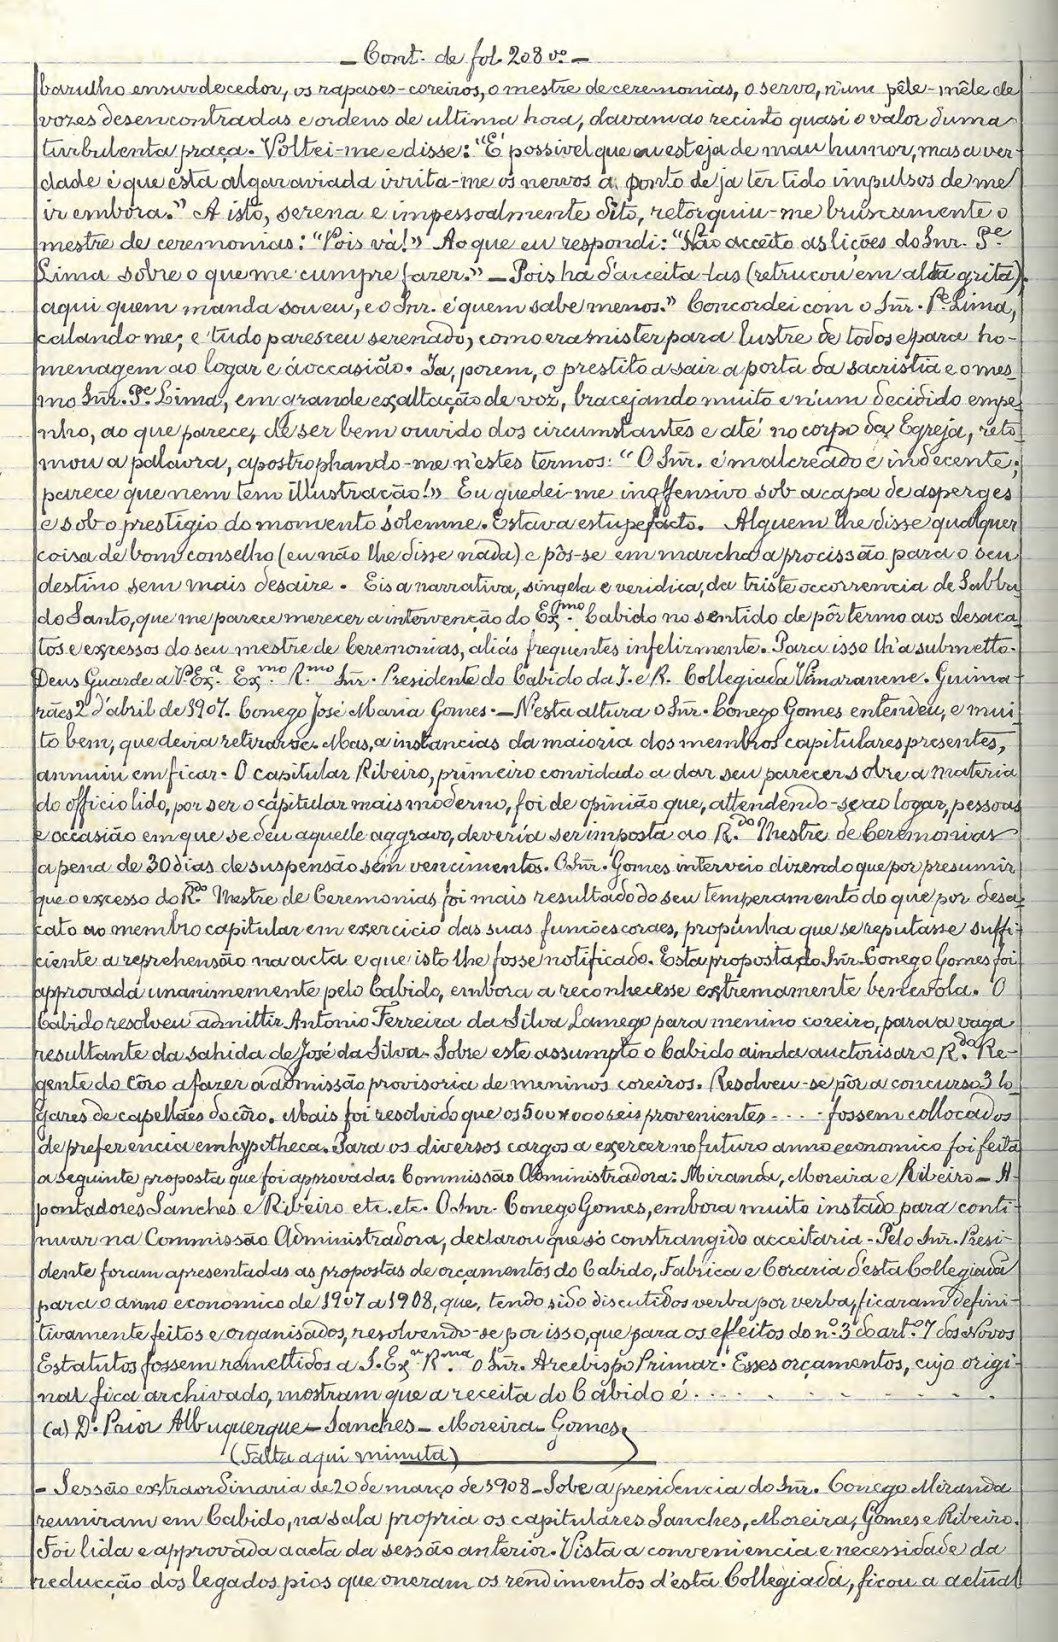 — Cont. de fol. 208 vº —
barulho ensurdecedor, os rapases-coreiros, o mestre de ceremonias, o servo, n'um pêle-mêle de
vozes desencontradas e ordens de ultima hora, davam ao recinto quasi o valor duma
turbulenta praça. Voltei-me e disse: "É possivel que eu esteja de mau humor, mas a ver-
dade é que esta algaraviada irrita-me os nervos a ponto de ja têr tido impulsos de me
ir embora." A isto, serena e impessoalmente dito, retorquiu-me bruscamente o
mestre de ceremonias: "Pois vá!" Ao que eu respondi: "Não acceito as lições do Snr. Pe
Lima sobre o que me cumpre fazer." — Pois ha d'acceita-las (retrucou em alta grita)
aqui quem manda sou eu, e o Snr. é quem sabe menos." Concordei com o Snr. Pe Lima,
calando-me; e tudo paresceu serenado, como era mister para lustre de todos e para ho-
menagem ao logar e á occasião. Ia, porem, o prestito a sair a porta da sacristia e o mes-
mo Snr. Pe Lima, em grande exaltação de voz, bracejando muito e n'um decidido empe-
nho, ao que parece, de ser bem ouvido dos circumstantes e até no corpo da Egreja, reto-
mou a palavra, apostrophando-me n'estes termos: "O Snr. é malcreado e indecente;
parece que nem tem illustração!" Eu quedei-me inoffensivo sob a capa de asperges
e sob o prestigio do momento solemne. Estava estupefacto. Alguem lhe disse qualquer
coisa de bom conselho (eu não lhe disse nada) e pôs-se em marcha a procissão para o seu
destino sem mais desaire. Eis a narrativa, singela e veridica, da triste occorrencia de Sabba-
do Santo, que me parece merecer a intervenção do Exmo. Cabido no sentido de pôr termo aos desaca-
tos e excessos do seu mestre de Ceremonias, aliás frequentes infelizmente. Para isso lh'a submetto.
Deus Guarde a V.Exa. Exmo Rmo Snr. Presidente do Cabido da I. e R. Collegiada Vimaranense. Guima-
rães 2 d'abril de 1907. Conego José Maria Gomes. — N'esta altura o Snr. Conego Gomes entendeu, e mui-
to bem, que devia retirar-se. Mas, a instancias da maioria dos membros capitulares presentes,
annuiu em ficar. O capitular Ribeiro, primeiro convidado a dar seu parecer sobre a materia
do officio lido, por ser o capitular mais moderno, foi de opinião que, attendendo-se ao logar, pessoas
e occasião em que se deu aquelle aggravo, deveria ser imposta ao R.do Mestre de Ceremonias
a pena de 30 dias de suspensão sem vencimentos. O Snr. Gomes interveio dizendo que por presumir
que o excesso do Rdo Mestre de Ceremonias foi mais resultado do seu temperamento do que por desa-
cato ao membro capitular em exercicio das suas funcões coraes, propunha que se reputasse suffi-
ciente a reprehensão na acta e que isto lhe fosse notificado. Esta proposta do Snr. Conego Gomes foi
approvada unanimemente pelo Cabido, embora a reconhecesse extremamente benevola. O
Cabido resolveu admittir Antonio Ferreira da Silva Lamego para menino coreiro, para a vaga
resultante da sahida de José da Silva. Sobre este assumpto o Cabido ainda auctorisar o Rdo Re-
gente do Côro a fazer a admissão provisoria de meninos coreiros. Resolveu-se pôr a concurso 3 lo-
gares de capellães do côro. Mais foi resolvido que os 500$000 reis provenientes .... fossem collocados
de preferencia em hypotheca. Para os diversos cargos a exercer no futuro anno economico foi feita
a seguinte proposta que foi approvada: Commissão Administradora: Miranda, Moreira e Ribeiro — A-
pontadores Sanches e Ribeiro etc. etc. O Snr. Conego Gomes, embora muito instado para conti-
nuar na Commissão Administradora, declarou que só constrangido acceitaria — Pelo Snr. Presi-
dente foram apresentadas as propostas de orçamentos do Cabido, Fabrica e Coraria d'esta Collegiada
para o anno economico de 1907 a 1908, que, tendo sido discutidos verba por verba, ficaram defini-
tivamente feitos e organisados, resolvendo-se por isso, que para os effeitos do nº 3 do artº 7 dos Novos
Estatutos fossem remettidos a S. Exa Rma o Snr. Arcebispo Primaz. Esses orçamentos, cujo origi-
nal fica archivado, mostram que a receita do Cabido é . . . . . . . . . . .
(a) D. Prior Albuquerque — Sanches — Moreira — Gomes
(Falta aqui minuta)
— Sessão extraordinaria de 20 de março de 1908 — Sobe a presidencia do Snr. Conego Miranda
reuniram em Cabido, na sala propria os capitulares Sanches, Moreira, Gomes e Ribeiro.
Foi lida e approvada a acta da sessão anterior. Vista a conveniencia e necessidade da
reducção dos legados pios que oneram os rendimentos d'esta Collegiada, ficou a actual